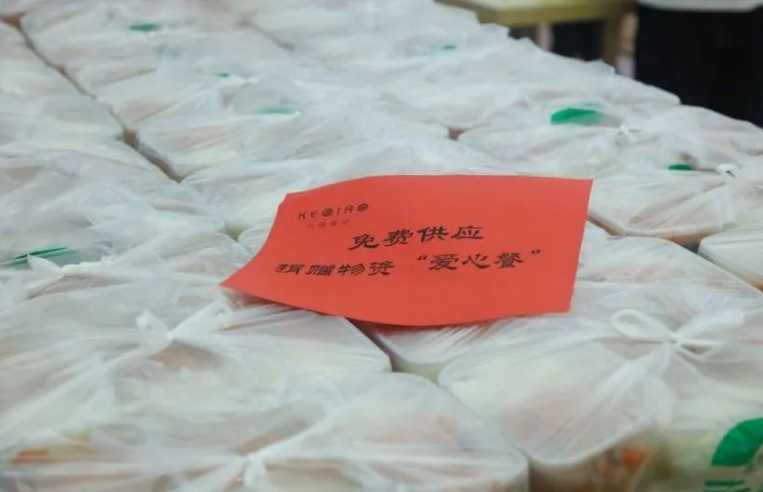 KEQIAO
免费供应
捐赠物资 “爱心餐”